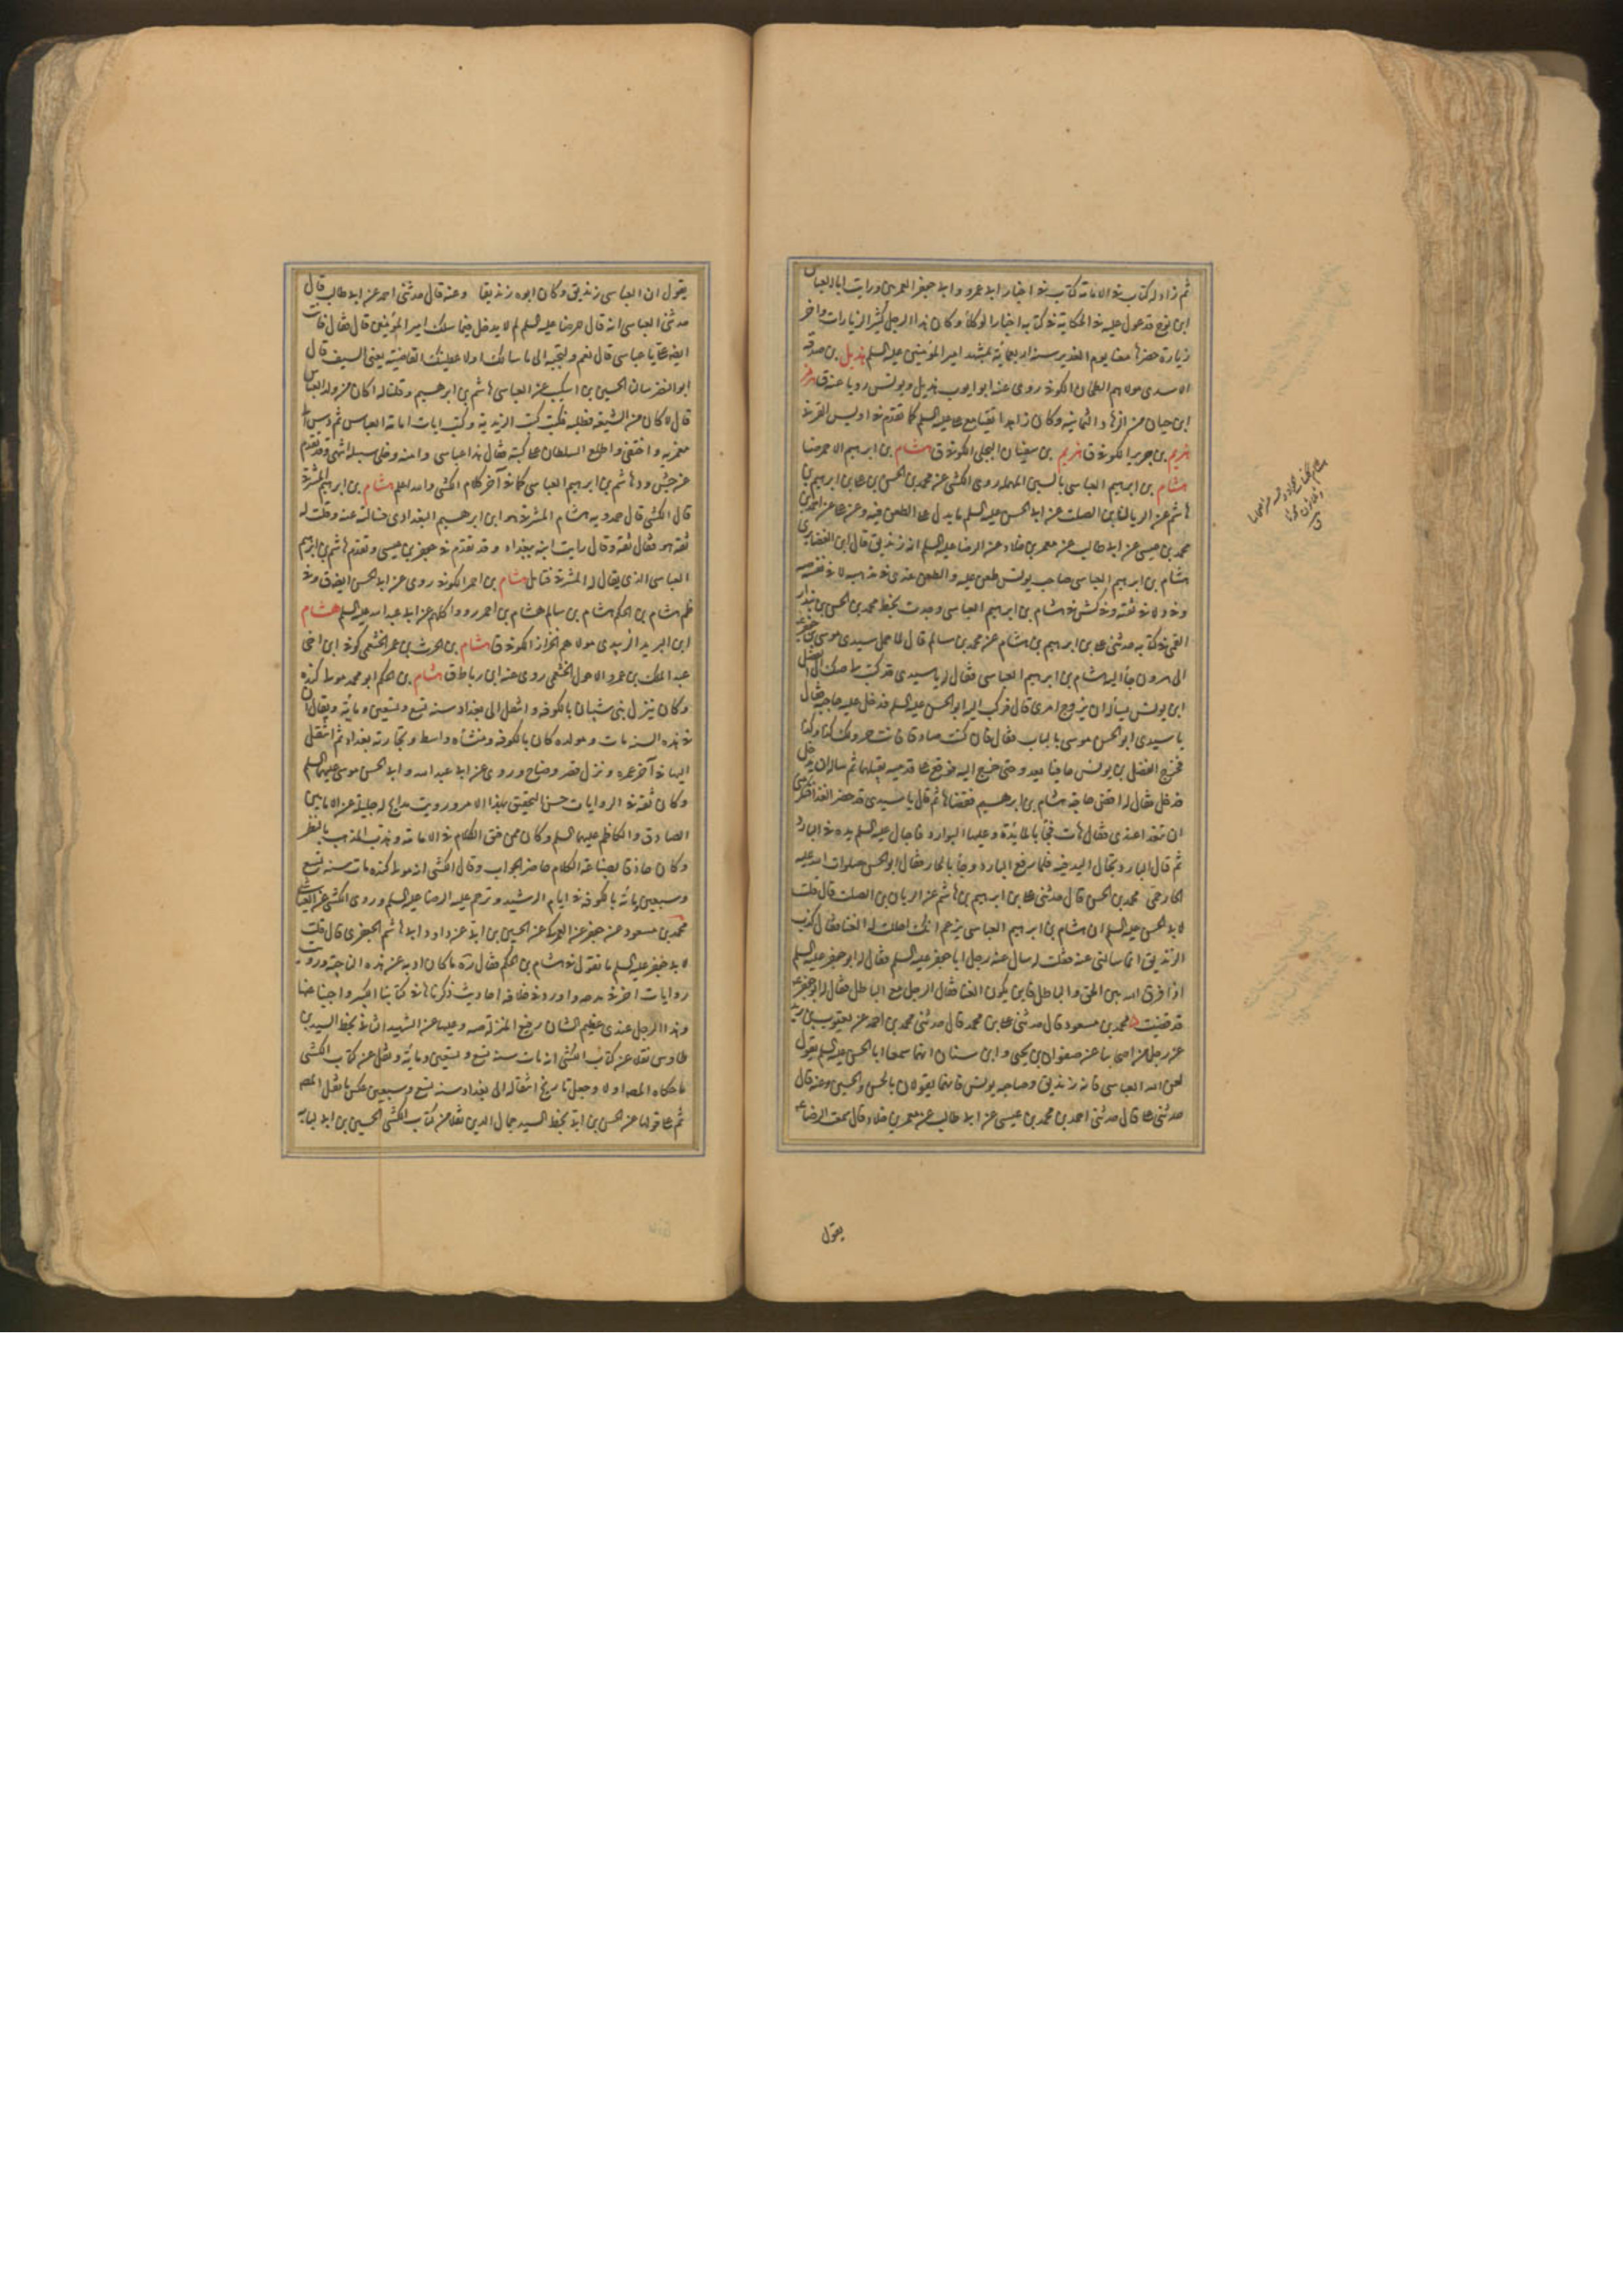 ثم زاد له كتاب في الامامة كتاب في اخبار ابي عمرو وابي جعفر العمريين ورايت ابا العباس
ابن نوح قد عول عليه في الحكاية في كتابه اخبار الوكلاء وكان هذا الرجل كثير الزيارات واخر
زيارة حضرها معنا يوم الغدير سنة اربعمائة بمشهد امير المؤمنين عليه السلم هذيل بن صدقة
الاسدي مولاهم الطحان الكوفي روى عنه ابو ايوب هذيل ويونس رويا عنه ق هرم
ابن حيان من الزهاد الثمانية وكان زاهدا تقيا مع علي عليه السلم كما تقدم في اويس القرني
هريم بن جرير الكوفي ق هريم بن سفيان البجلي الكوفي ق هشام بن ابرهيم الاحمر ضا
هشام بن ابرهيم العباسي بالسين المهملة روى الكشي عن محمد بن الحسن بن علي بن ابرهيم بن
هاشم عن الريان بن الصلت عن ابي الحسن عليه السلم ما يدل على الطعن فيه وعنه عن علي عن احمد بن
محمد بن عيسى عن ابي طالب عن معمر بن خلاد عن الرضا عليه السلم انه زنديق قال ابن الغضايري
هشام بن ابرهيم العباسي صاحب يونس طعن عليه والطعن عندي في مذهبه لا في نفسه صه
وفي د لا في ثقته وفي كش في هشام بن ابرهيم العباسي وجدت بخط محمد بن الحسن بن بندار
القمي في كتابه حدثني علي بن ابرهيم بن هاشم عن محمد بن سالم قال لما حمل سيدي موسى بن جعفر
الى هرون جاء اليه هشام بن ابرهيم العباسي فقال له يا سيدي قد كتب لي صك الى الفضل
ابن يونس يسأله ان يروج امري قال فركب اليه ابو الحسن عليه السلم فدخل عليه حاجبه فقال
يا سيدي ابو الحسن موسى بالباب فقال فان كنت صادقا فانت حر ولك كذا وكذا
فخرج الفضل بن يونس حافيا يعدو حتى خرج اليه فوقع على قدميه يقبلهما ثم سأله ان يدخل
فدخل فقال له اقض حاجة هشام بن ابرهيم فقضاها ثم قال يا سيدي قد حضر الغداء فتكرمني
ان تتغدا عندي فقال هات فجاء بالمائدة وعليها البوارد فاجال عليه السلم يده في البارد
ثم قال البارد تجال اليد فيه فلما رفع البارد وجاء بالحار فقال ابو الحسن صلوات الله عليه
الحار حمى محمد بن الحسن قال حدثني علي بن ابرهيم بن هاشم عن الريان بن الصلت قال قلت
لابي الحسن عليه السلم ان هشام بن ابرهيم العباسي يزعم انك احللت له الغنا فقال كذب
الزنديق انما سالني عنه فقلت له سال عنه رجل ابا جعفر عليه السلم فقال له ابو جعفر عليه السلم
اذا فرق الله بين الحق والباطل فاين يكون الغنا فقال الرجل مع الباطل فقال له ابو جعفر ع
قد قضيت محمد بن مسعود قال حدثني علي بن محمد قال حدثني محمد بن احمد عن يعقوب بن يزيد
عن رجل من اصحابنا عن صفوان بن يحيى وابن سنان انهما سمعا ابا الحسن عليه السلم يقول
لعن الله العباسي فانه زنديق وصاحبه يونس فانهما يقولان بالحسن والحسين وعنه قال
حدثني علي قال حدثني احمد بن محمد بن عيسى عن ابي طالب عن معمر بن خلاد قال سمعت الرضا ع
يقول
يقول ان العباسي زنديق وكان ابوه زنديقا وعنه قال حدثني احمد عن ابي طالب قال
حدثني العباسي انه قال للرضا عليه السلم لم لا يدخل فيما سلك امير المؤمنين قال فقال فانت
ايضا علي يا عباسي قال نعم ولتجيبه الى ما سالك اولا عطينك القاضية يعني السيف قال
ابو النضر سالت الحسين بن اشكيب عن العباسي هاشم بن ابرهيم وقلنا له اكان من ولد العباس
قال لا كان من الشيعة فطلبه فكتب كتب الزيدية وكتب اثبات امامة العباس ثم دس الى
من يغمز به واختفى واطلع السلطان على كتبه فقال هذا عباسي وامنه وخلى سبيله انتهى وقد تقدم
عن جش و د هاشم بن ابرهيم العباسي كما في آخر كلام الكشي والله اعلم هشام بن ابرهيم المشرقي
قال الكشي قال حمدويه هشام المشرقي هو ابن ابرهيم البغدادي فسالته عنه وقلت له
ثقة هو فقال ثقة وقال رايت ابنه ببغداد وقد تقدم في جعفر بن عيسى وتقدم هاشم بن ابرهيم
العباسي الذي يقال له المشرقي فتامل هشام بن احمر الكوفي روى عن ابي الحسن ايضا ق وفي
ظم هشام بن الحكم هشام بن سالم هشام بن احمر رووا كلهم عن ابي عبد الله عليه السلم هشام
ابن البريد الزبيدي مولاهم الخزاز الكوفي ق هشام بن الحرث بن عمر الخثعمي كوفي ابن اخي
عبد الملك بن عمرو الاحول الخثعمي روى عنه ابن رباط ق هشام بن الحكم ابو محمد مولى كندة
وكان ينزل بني شيبان بالكوفة وانتقل الى بغداد سنة تسع وتسعين ومائة ويقال ان
في هذه السنة مات ومولده كان بالكوفة ومنشأه واسط وتجارته بغداد ثم انتقل
اليها في آخر عمره ونزل قصر وضاح وروى عن ابي عبد الله وابي الحسن موسى عليهما السلم
وكان ثقة في الروايات حسن التحقيق بهذا الامر ورويت مدايح له جليلة عن الامامين
الصادق والكاظم عليهما السلم وكان ممن فتق الكلام في الامامة وهذب المذهب بالنظر
وكان حاذقا بصناعة الكلام حاضر الجواب وقال الكشي انه مولى كندة مات سنة تسع
وسبعين ومائة بالكوفة في ايام الرشيد وترحم عليه الرضا عليه السلم وروى الكشي عن العياشي
محمد بن مسعود عن جعفر عن العمركي عن الحسين بن ابي عن داود ابي هاشم الجعفري قال قلت
لابي جعفر عليه السلم ما تقول في هشام بن الحكم فقال رحمه الله ما كان اذبه عن هذه الناحية ورويت
روايات اخر في مدحه واورد في خلافه احاديث ذكرناها في كتابنا الكبير واجبنا عنها
وهذا الرجل عندي عظيم الشان رفيع المنزلة صه وعليها عن الشهيد الثاني بخط السيد بن
طاوس نقلا عن كتاب الكشي انه مات سنة تسع وتسعين ومائة ونقل عن كتاب الكشي
ما حكاه المصـ اولا وجعل تاريخ انتقاله الى بغداد سنة تسع وسبعين عكس ما نقل المصـ
ثم على قولنا عن الحسين بن ابي بخط السيد جمال الدين نقلا من كتاب الكشي الحسين بن ابي لبابة